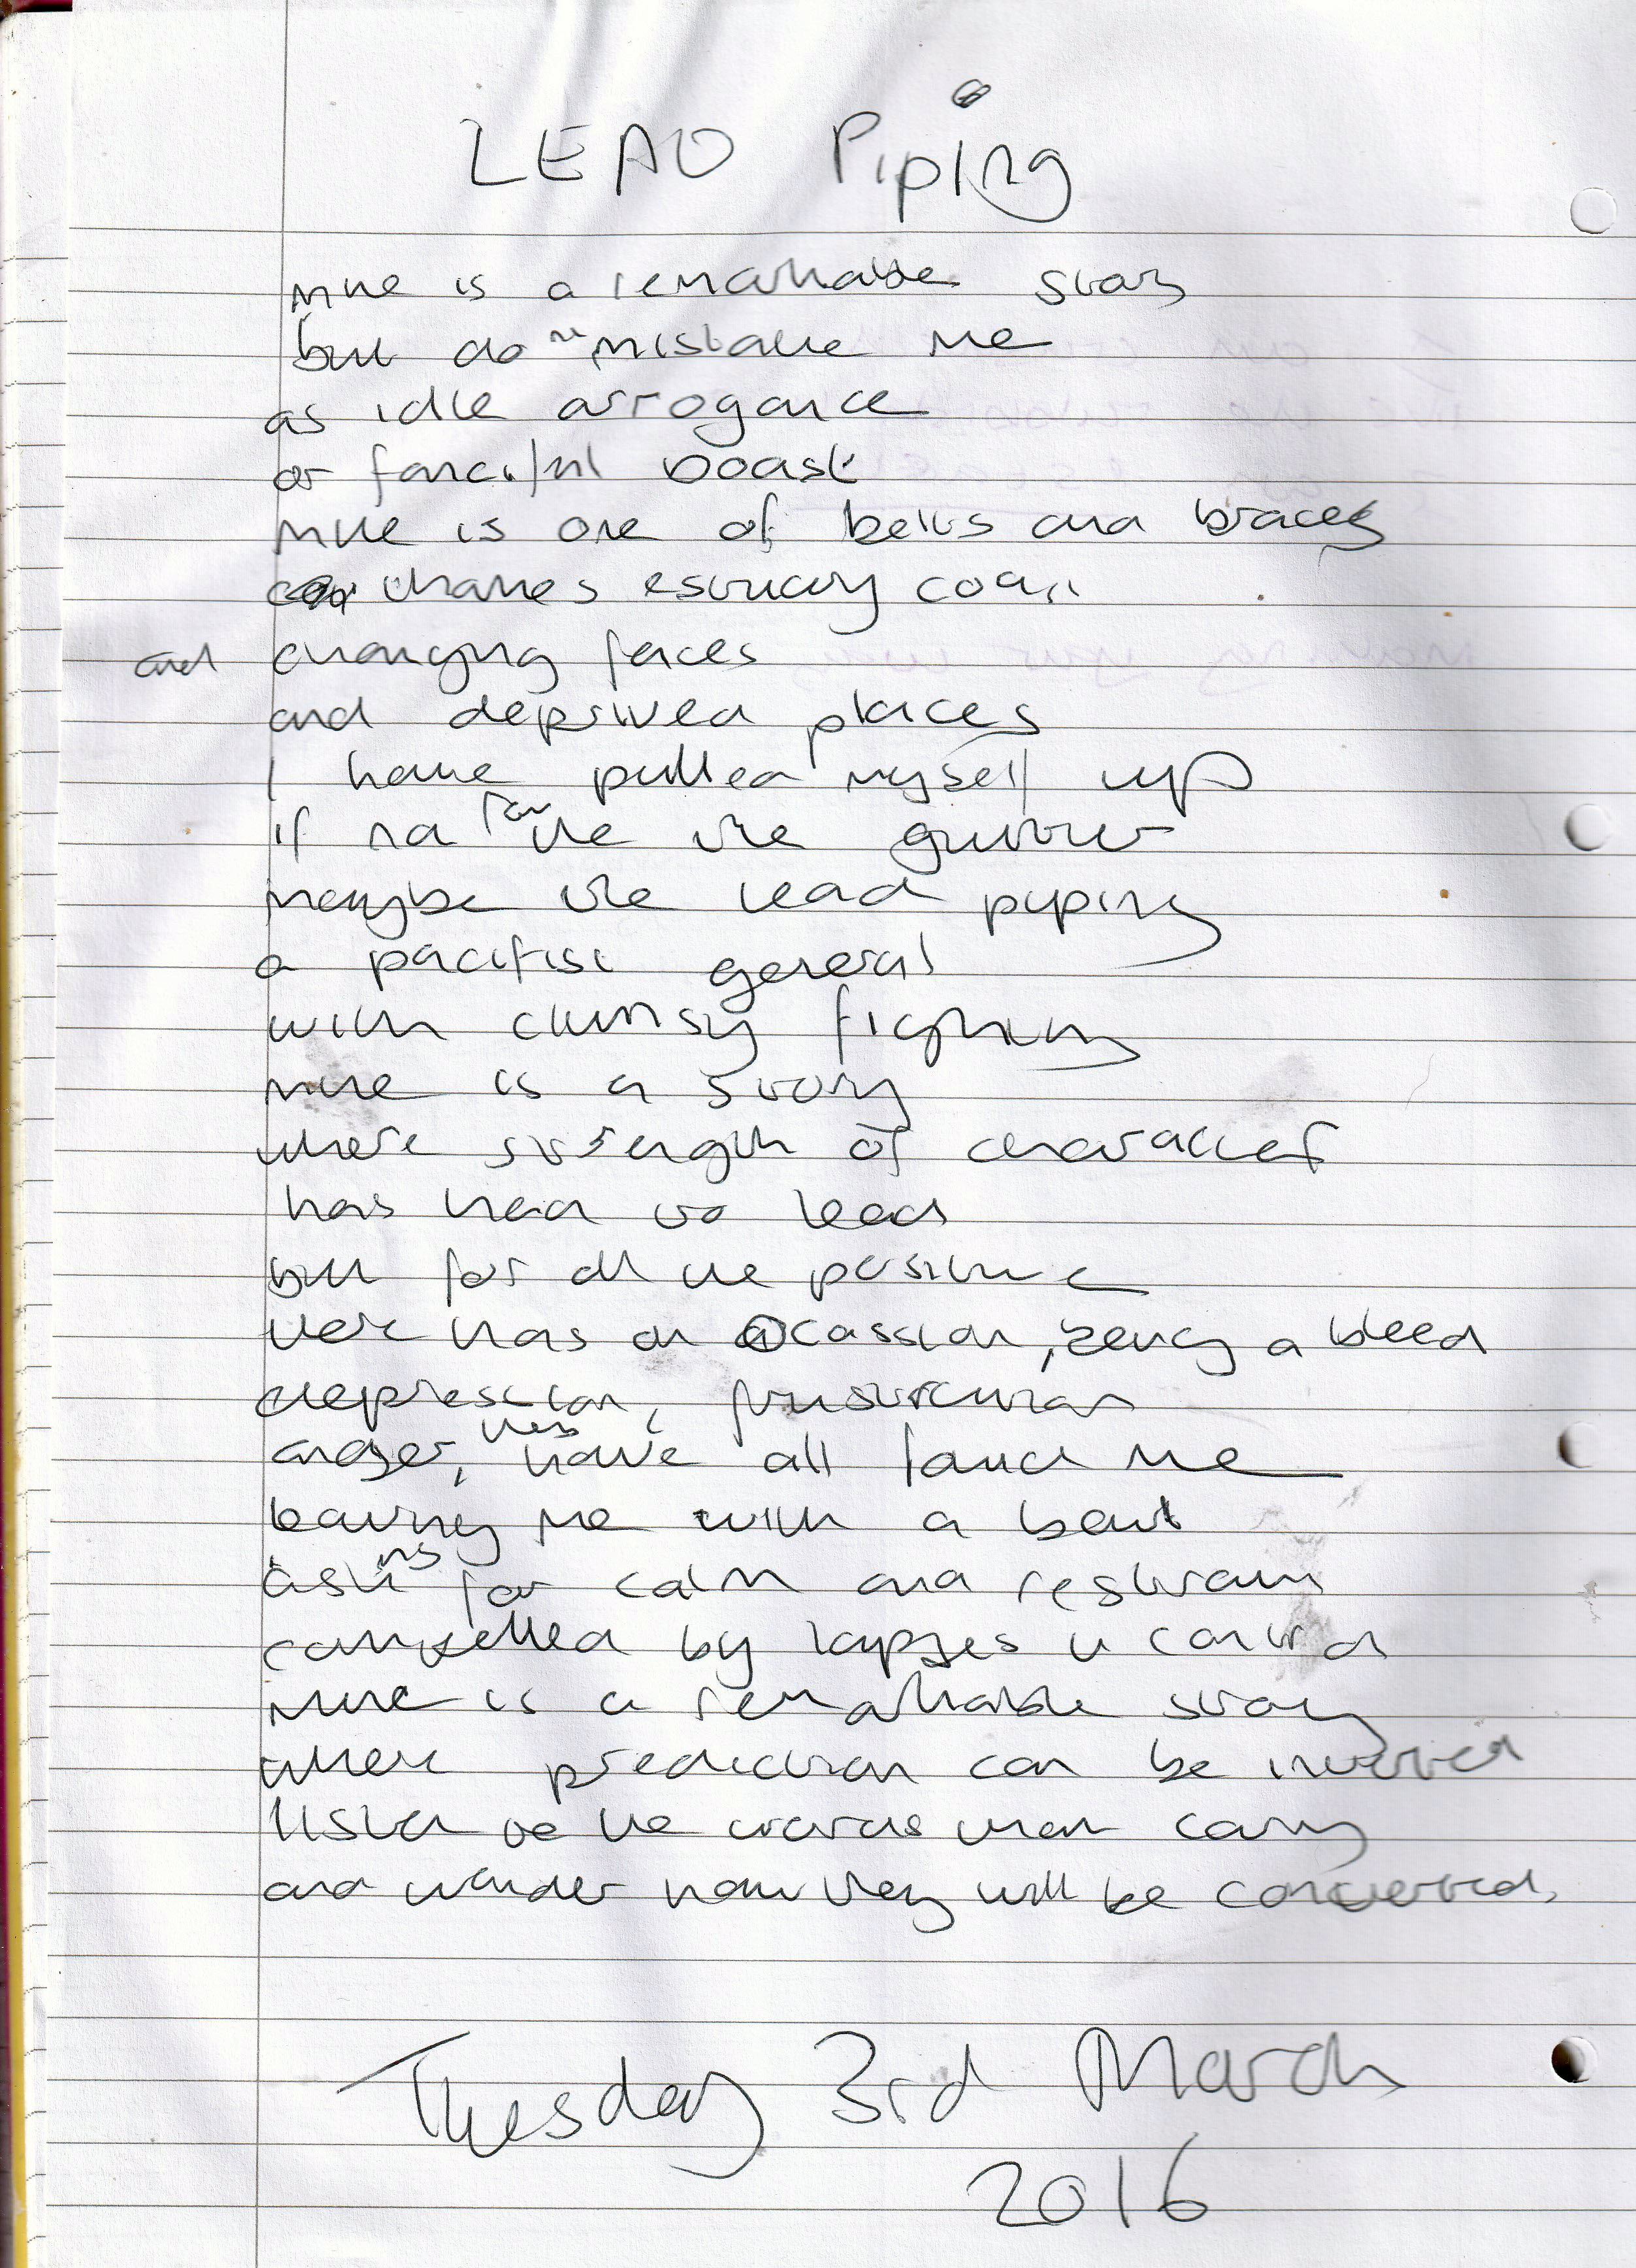 LEAD Piping
mine is a remarkable story
but do not mistake me
as idle arrogance
or fanciful boast
mine is one of belts and braces
thames estuary coast
and changing faces
and deprived places
I have pulled myself up
if not from the the gutter
maybe the lead piping
a pacifist general
with clumsy fighting
mine is a story
where strength of character
has had to lead
but for all the positive
there has on occassion, being a bleed
depression, frustration
anger, this have all found me
leaving me with a
asking for calm and restraint
cancelled by lapses in control
mine is a remarkable story
where prediction can be inverted
listen to the words men carry
and wonder how they will be converted.
Tuesday 3rd March
2016